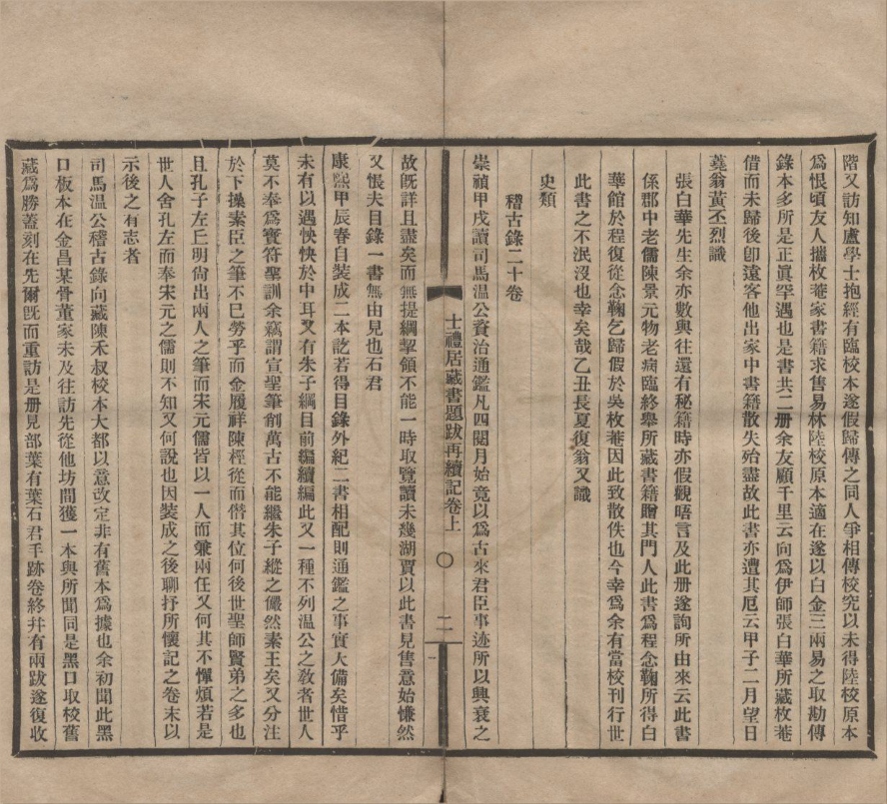 階又訪知盧學士抱經有臨校本遂假歸傳之同人爭相傳校究以未得陸校原本
爲恨頃友人攜枚菴家書籍求售易林陸校原本適在遂以白金三兩易之取勘傳
錄本多所是正眞罕遇也是書共二册余友顧千里云向爲伊師張白華所藏枚菴
借而未歸後卽遠客他出家中書籍散失殆盡故此書亦遭其厄云甲子二月望日
蕘翁黃丕烈識
張白華先生余亦數與往還有秘籍時亦假觀晤言及此册遂詢所由來云此書
係郡中老儒陳景元物老病臨終舉所藏書籍贈其門人此書爲程念鞠所得白
華館於程復從念鞠乞歸假於吳枚菴因此致散佚也今幸爲余有當校刊行世
此書之不泯沒也幸矣哉乙丑長夏復翁又識
史類
稽古錄二十卷
崇禎甲戌讀司馬温公資治通鑑凡四閱月始竟以爲古來君臣事迹所以興衰之
士禮居藏書題跋再續記卷上 〇 二
故旣詳且盡矣而無提綱挈領不能一時取覽讀未幾湖賈以此書見售意始慊然
又悵夫目錄一書無由見也石君
康熙甲辰春自裝成二本訖若得目錄外紀二書相配則通鑑之事實大備矣惜乎
未有以遇怏怏於中耳又有朱子綱目前編續編此又一種不列温公之敎者世人
莫不奉爲寳符聖訓余竊謂宣聖筆創萬古不能繼朱子縱之儼然素王矣又分注
於下操素臣之筆不已勞乎而金履祥陳桱從而僭其位何後世聖師賢弟之多也
且孔子左丘明尙出兩人之筆而宋元儒皆以一人而兼兩任又何其不憚煩若是
世人舍孔左而奉宋元之儒則不知又何說也因裝成之後聊抒所懷記之卷末以
示後之有志者
司馬温公稽古錄向藏陳禾叔校本大都以意改定非有舊本爲據也余初聞此黑
口板本在金昌某骨董家未及往訪先從他坊間獲一本與所聞同是黑口取校舊
藏爲勝蓋刻在先爾旣而重訪是册見部葉有葉石君手跡卷終幷有兩跋遂復收